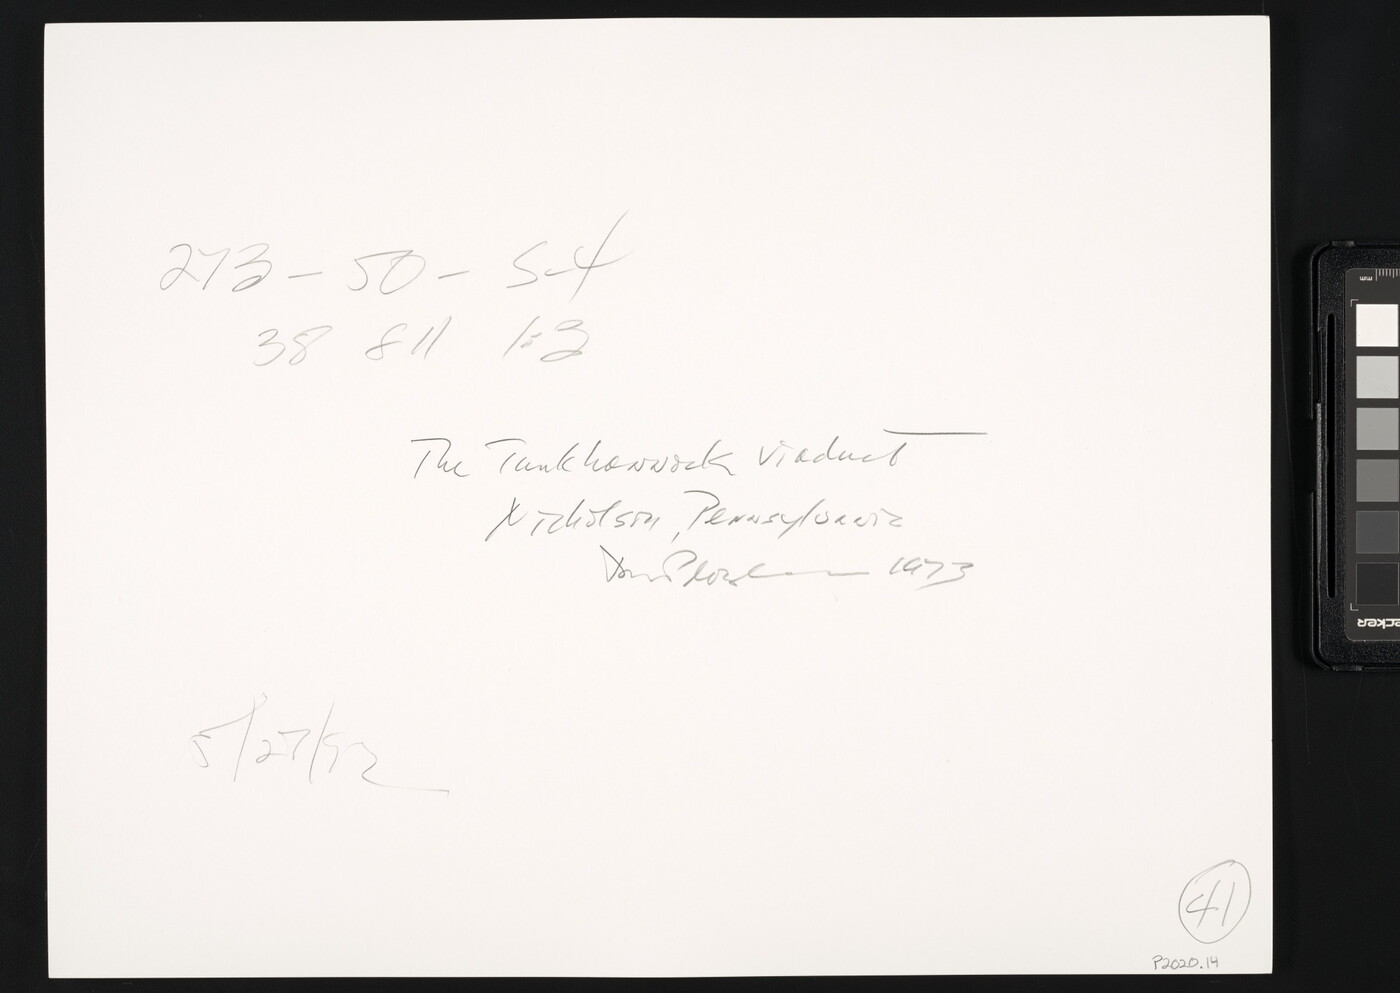 273 - 50 - S-4
38 8 11 1:3
The Tunkhannock Viaduct
Nicholson, Pennsylvania
1973
5/27/92
41
P2020.14
mm